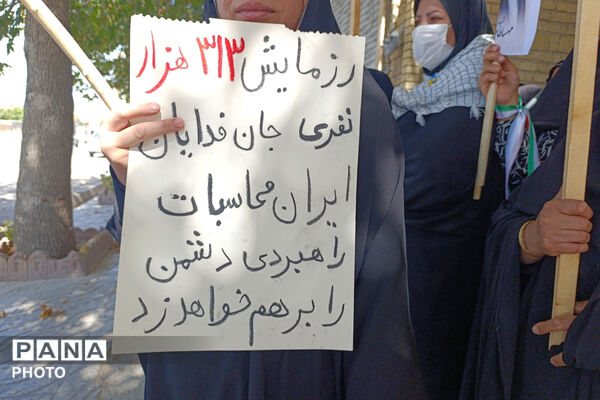 رزمایش ۳۱۳ هزار
نفری جان فدایان
ایران محاسبات
راهبردی دشمن
را برهم خواهد زد
PANA
PHOTO